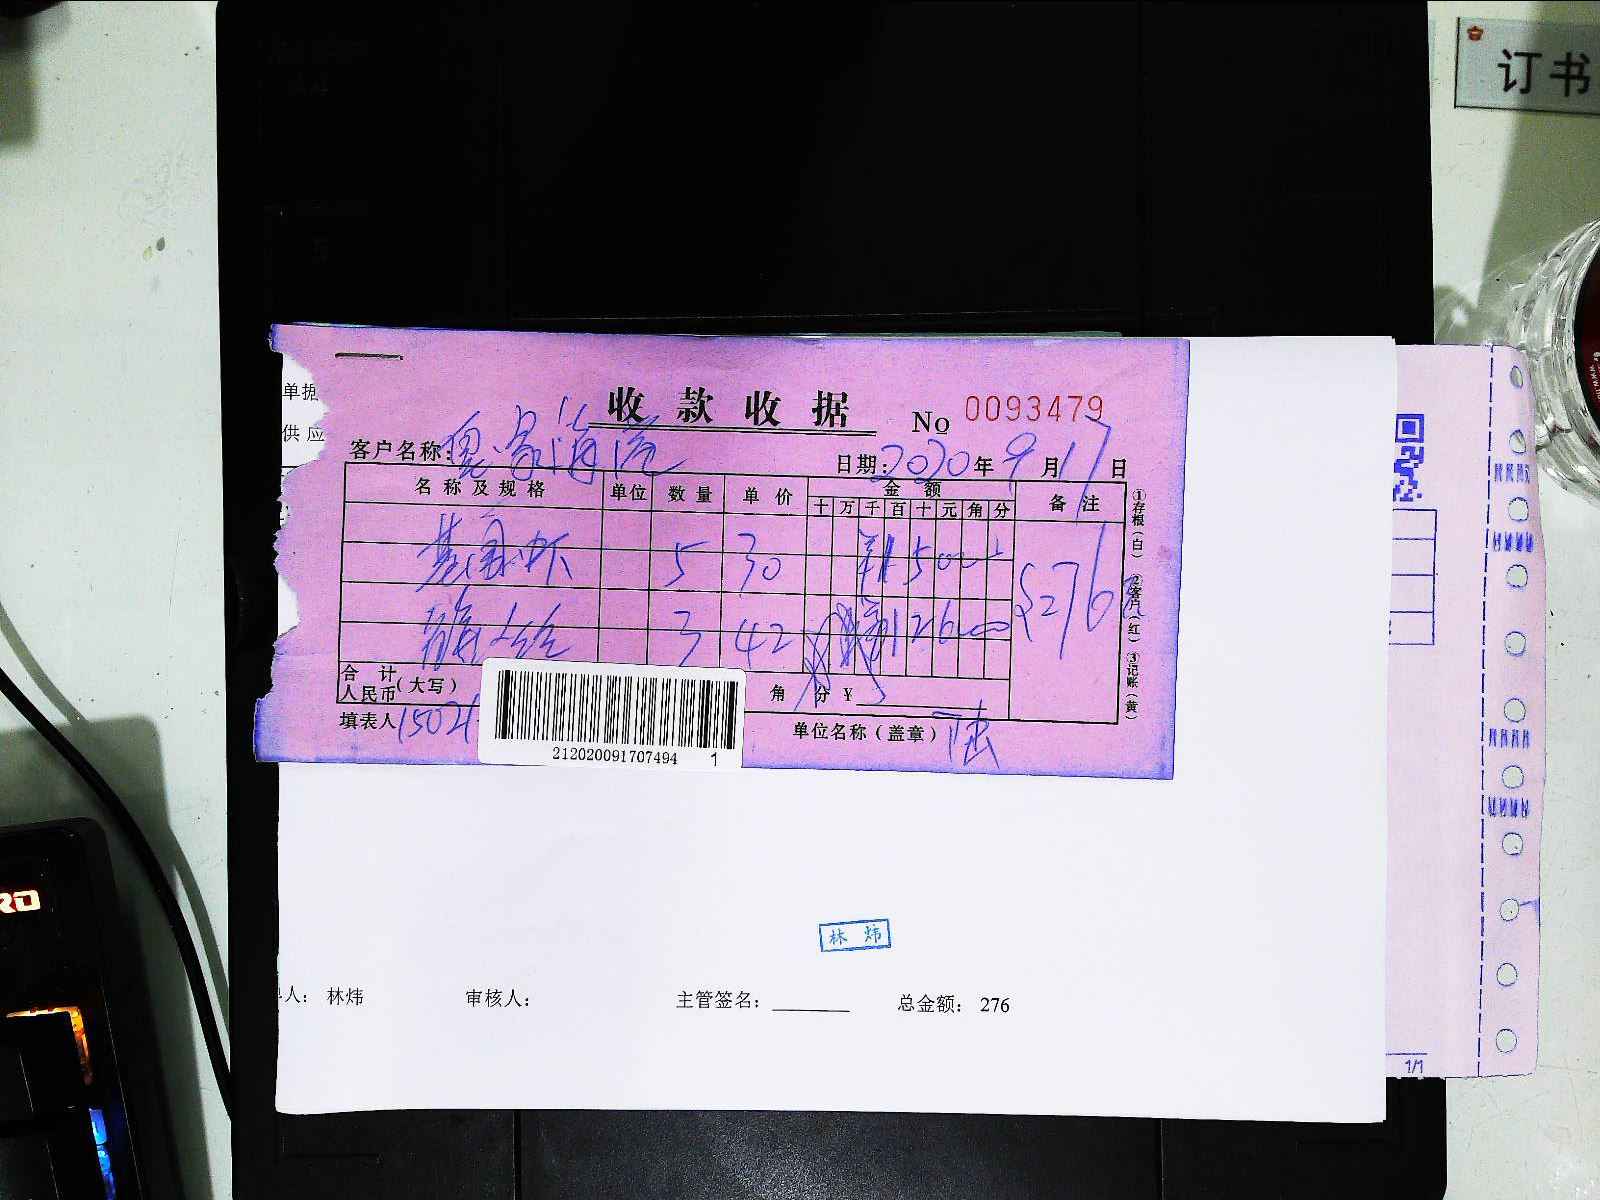 订书
单据
供应
收款收据 No 0093479
客户名称: 日期: 2020年9月17日
名称及规格 单位 数量 单价 金额 备注
十 万 千 百 十 元 角 分
基围虾 5 30 15000
3 42 12600 276
合计
人民币(大写) 角 分 ¥
填表人 15021 单位名称(盖章)
①存根(白) ②客户(红) ③记账(黄)
212020091707494 1
林炜
人: 林炜 审核人: 主管签名: 总金额: 276
1/1